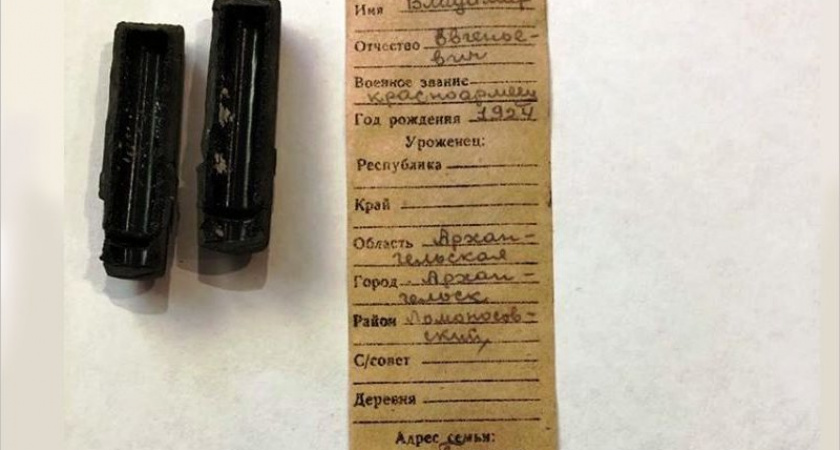 Имя Владимир
Отчество Евгенье-
вич
Военное звание
красноармеец
Год рождения 1924
Уроженец:
Республика
Край
Область Архан-
гельская
Город Архан-
гельск
Район Ломоносов-
ский
С/совет
Деревня
Адрес семьи: